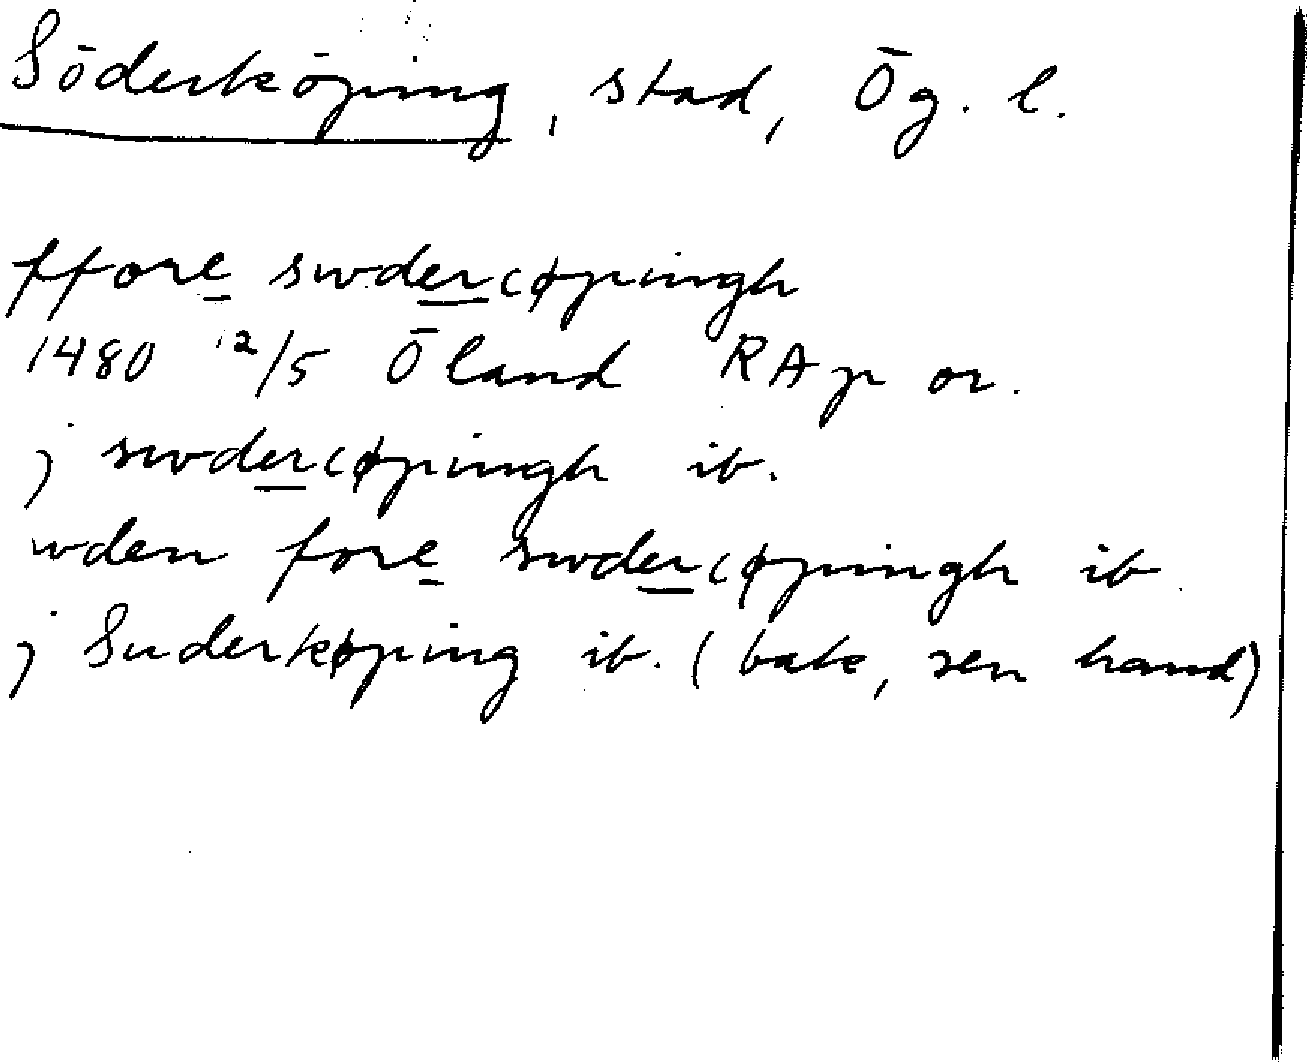 Söderköping, stad, Ög. l.
ffore swdercøpingh
1480 12/5 Öland RAp or.
j swdercøpingh ib.
wden fore swdercøpingh ib
j Suderkøping ib. (bak, sen hand)